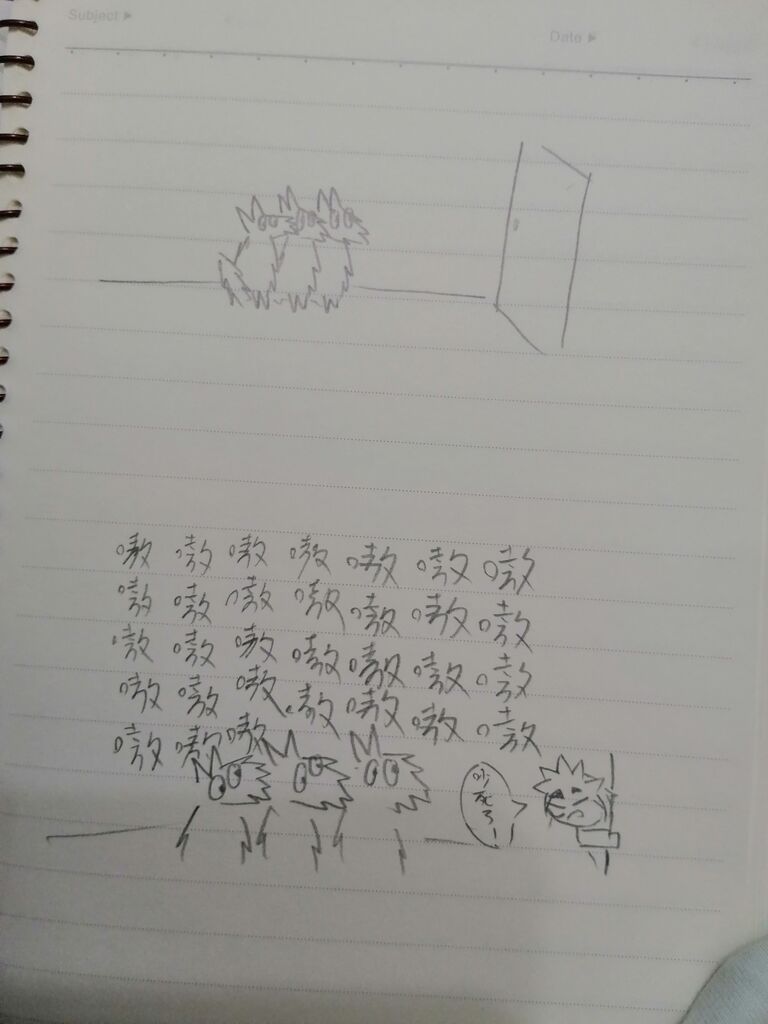 Subject ▶
Date ▶
嗷嗷嗷嗷嗷嗷嗷
嗷嗷嗷嗷嗷嗷嗷
嗷嗷嗷嗷嗷嗷嗷
嗷嗷嗷嗷嗷嗷嗷
嗷嗷嗷
吵死了!!